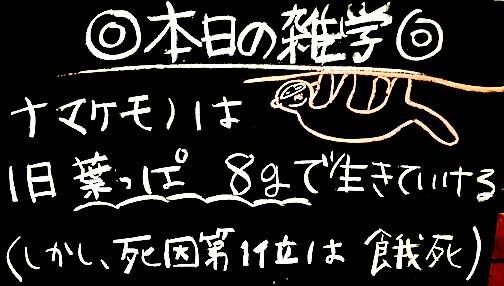 ◎本日の雑学◎
ナマケモノは
1日葉っぱ 8gで生きていける
(しかし、死因第1位は 餓死)